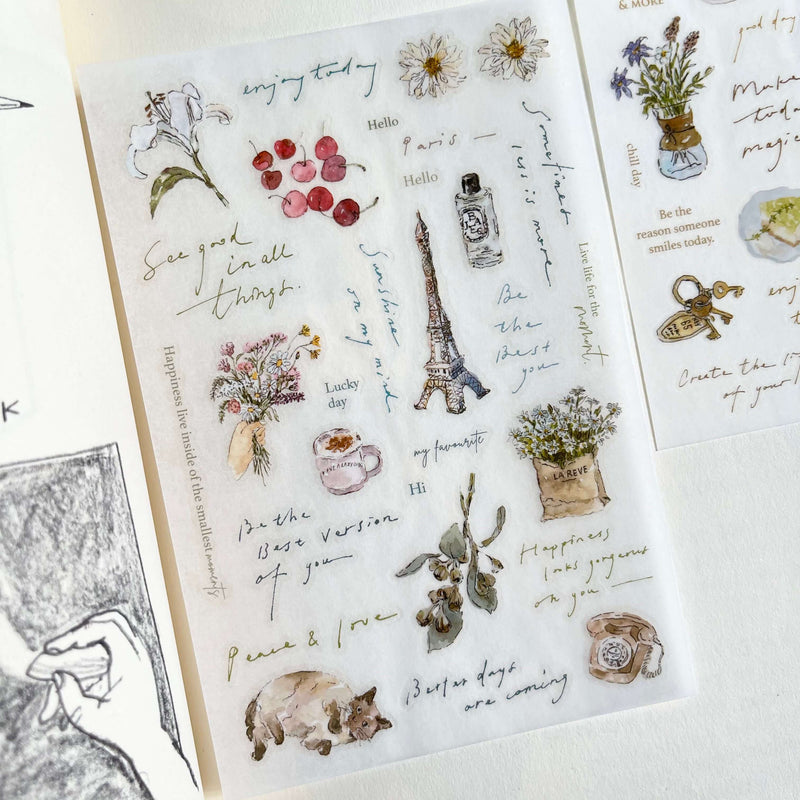 enjoy today
Hello
Paris —
Hello
Sometimes
less is more
See good
in all
things.
Sunshine
on my mind
Be
the
Best
you
Live life for the
moment.
Happiness live inside of the smallest moments
Lucky
day
my favourite
Hi
LA REVE
Be the
Best version
of you
Happiness
looks gorgeous
on you —
Peace & love
Better days
are coming
K
& MORE
good day
Make
today
magic
chill day
Be the
reason someone
smiles today.
enj
Create the
of your